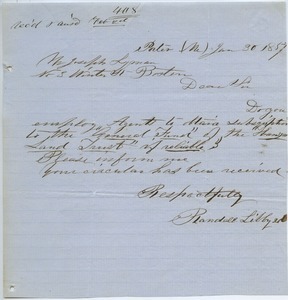 408
Rec'd & ans'd Feb 2d
Porter (Me) Jan 30 1857
Mr Joseph Lyman
No 3 Winter St Boston
Dear Sir
Do you
employ Agents to Maine subscription
to the "General Fund" of the "Kansas
Land Trust" if reliable?
Please inform me
your circular has been received
Respectfully
Randall Libby 2d